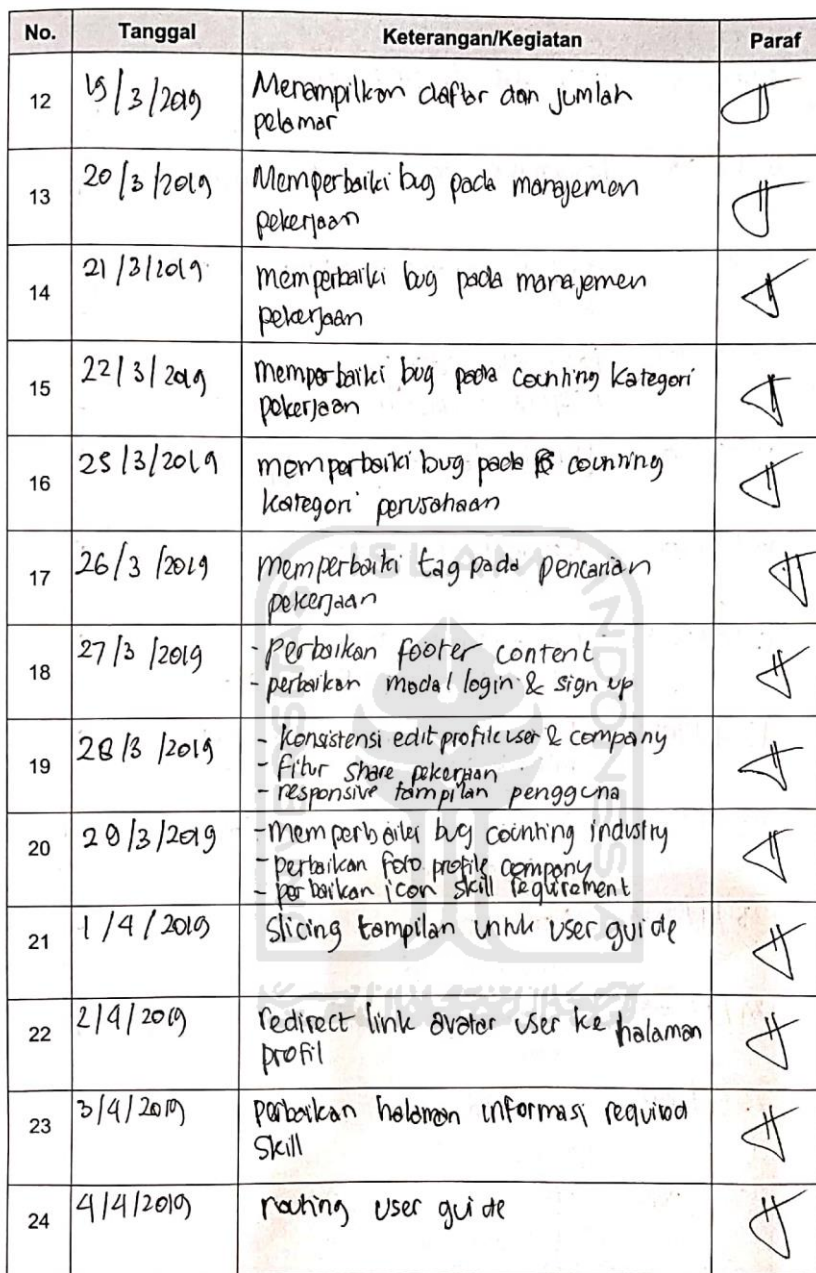 No. Tanggal Keterangan/Kegiatan Paraf
12 19/3/2019 Menampilkan daftar dan jumlah
pelamar
13 20/3/2019 Memperbaiki bug pada manajemen
pekerjaan
14 21/3/2019 memperbaiki bug pada manajemen
pekerjaan
15 22/3/2019 memperbaiki bug pada counting kategori
pekerjaan
16 25/3/2019 memperbaiki bug pada counting
kategori perusahaan
17 26/3/2019 memperbaiki tag pada pencarian
pekerjaan
18 27/3/2019 - Perbaikan footer content
- perbaikan modal login & sign up
19 28/3/2019 - Konsistensi edit profile user & company
- fitur share pekerjaan
- responsive tampilan pengguna
20 29/3/2019 - Memperbaiki bug counting industry
- perbaikan foto profile company
- perbaikan icon skill requirement
21 1/4/2019 Slicing tampilan untuk user guide
22 2/4/2019 redirect link avatar user ke halaman
profil
23 3/4/2019 perbaikan halaman informasi required
Skill
24 4/4/2019 routing user guide
ISLAM
UNIVERSITAS
INDONESIA